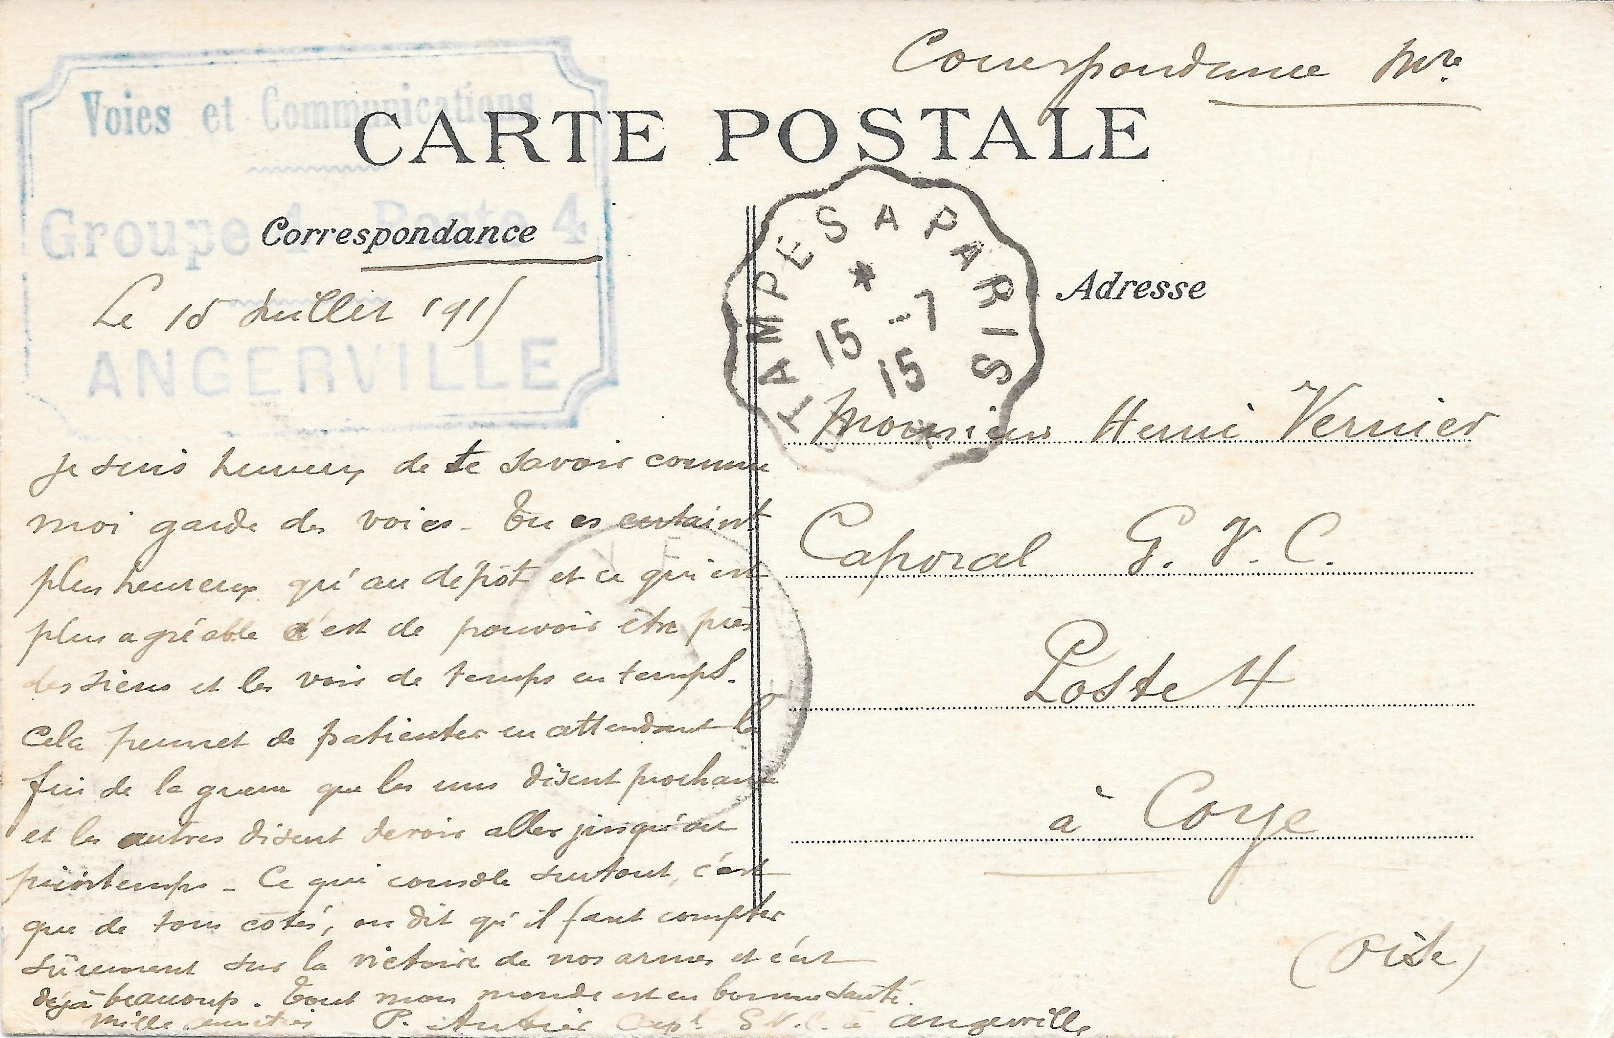 Correspondance Mre
Voies et Communications
CARTE POSTALE
Groupe 4 Poste 4
Correspondance
ANGERVILLE
Le 15 Juillet 1915
ETAMPES A PARIS
15 -7
15
Adresse
Monsieur Henri Vernier
Caporal G. V. C.
Poste 4
à Coye
(Oise)
Je suis heureux de te savoir comme
moi garde des voies - Tu es certaint
plus heureux qu'au dépôt et ce qui est
plus agréable c'est de pouvoir être près
des siens et les voir de temps en temps.
Cela permet de patienter en attendant la
fin de la guerre que les uns disent prochaine
et les autres disent devoir aller jusqu'au
printemps - Ce qui console surtout, c'est
que de tous cotés, on dit qu'il faut compter
sûrement sur la victoire de nos armes et c'est
déjà beaucoup. Tout mon monde est en bonne santé.
Mille amitiés P. Capl G.V.C. à Angerville